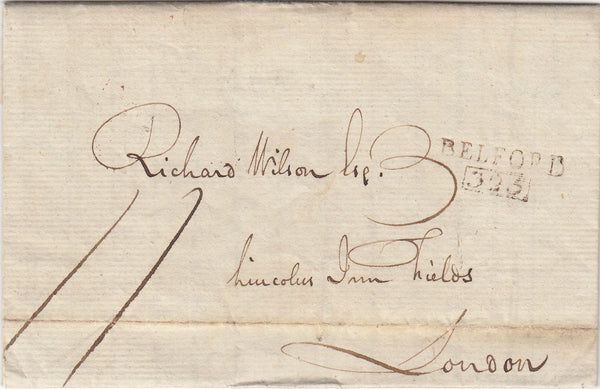 Richard Wilson Esq.
BELFORD
323
Lincolns Inn Fields
London
11